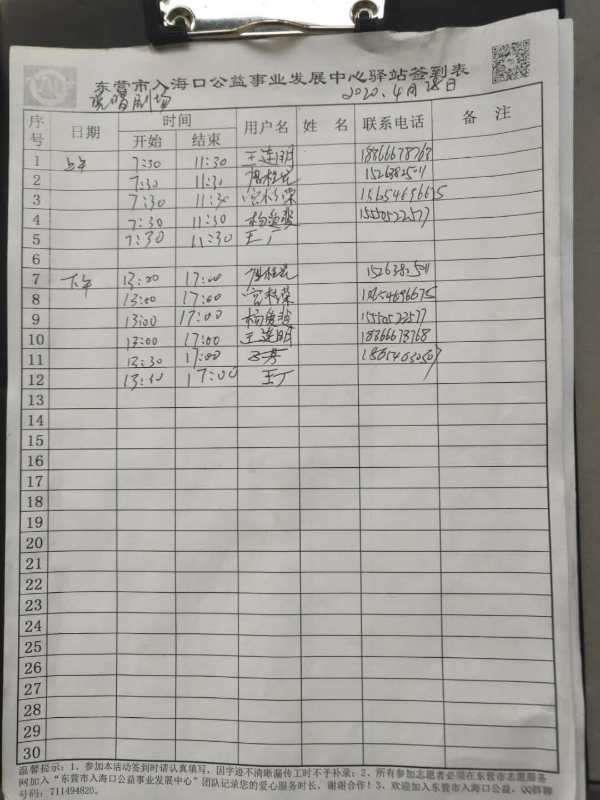 东营市入海口公益事业发展中心驿站签到表
吕剧剧场 2020.4月28日
序号 日期 时间 用户名 姓 名 联系电话 备 注
开始 结束
1 上午 7:30 11:30 王连明 18866678768
2 7:30 11:30 1526382501
3 7:30 11:30 15654696675
4 7:30 11:30 15550522577
5 7:30 11:30 王丁
6
7 下午 13:00 17:00 1526382501
8 13:00 17:00 15654696675
9 13:00 17:00 15550522577
10 13:00 17:00 王连明 18866678768
11 13:30 17:00
12 13:30 17:00 王丁
13
14
15
16
17
18
19
20
21
22
23
24
25
26
27
28
29
30
温馨提示:1、参加本活动签到时请认真填写,因字迹不清晰漏传工时不予补录;2、所有参加志愿者必须在东营市志愿服务
网加入“东营市入海口公益事业发展中心”团队记录您的爱心服务时长,谢谢合作!3、欢迎加入东营市入海口公益,QQ群聊
号码:711494820。